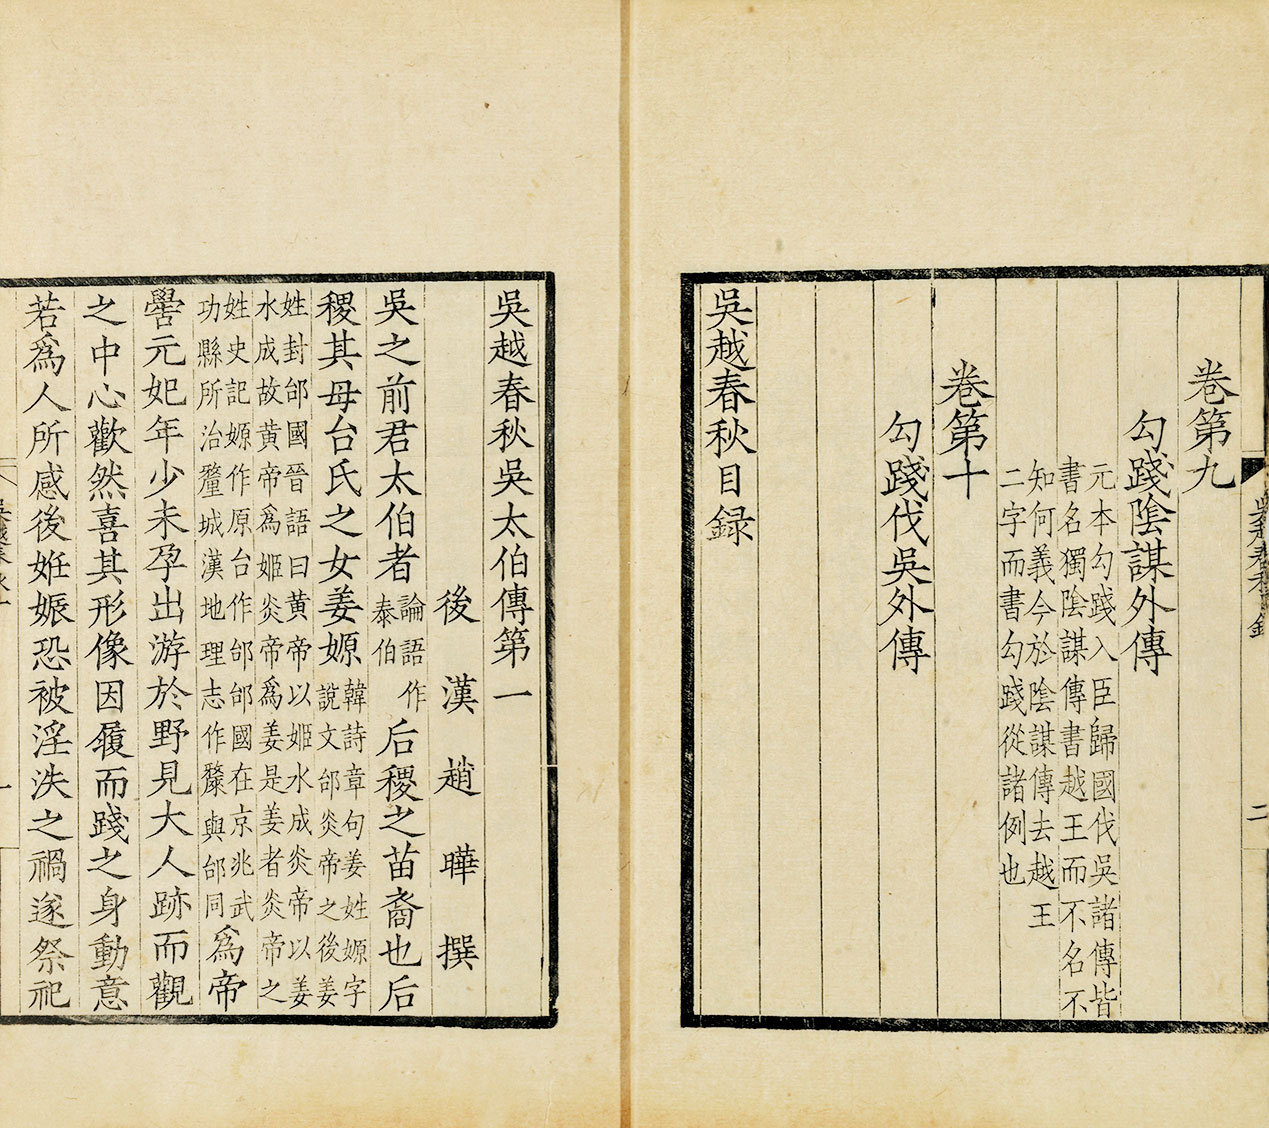 二
卷第九
勾踐陰謀外傳
元本勾踐入臣歸國伐吳諸傳皆
書名獨陰謀傳書越王而不名不
知何義今於陰謀傳去越王
二字而書勾踐從諸例也
卷第十
勾踐伐吳外傳
吳越春秋目録
吳越春秋吳太伯傳第一
後漢趙曄撰
吳之前君太伯者論語作泰伯后稷之苗裔也后
稷其母台氏之女姜嫄韓詩章句姜姓嫄字說文邰炎帝之後姜
姓封邰國晉語曰黃帝以姬水成炎帝以姜水成故黃帝爲姬炎帝爲姜是姜者炎帝之
姓史記嫄作原台作邰邰國在京兆武功縣所治釐城漢地理志作斄與邰同爲帝
嚳元妃年少未孕出游於野見大人跡而觀
之中心歡然喜其形像因履而踐之身動意
若爲人所感後姙娠恐被淫泆之禍遂祭祀